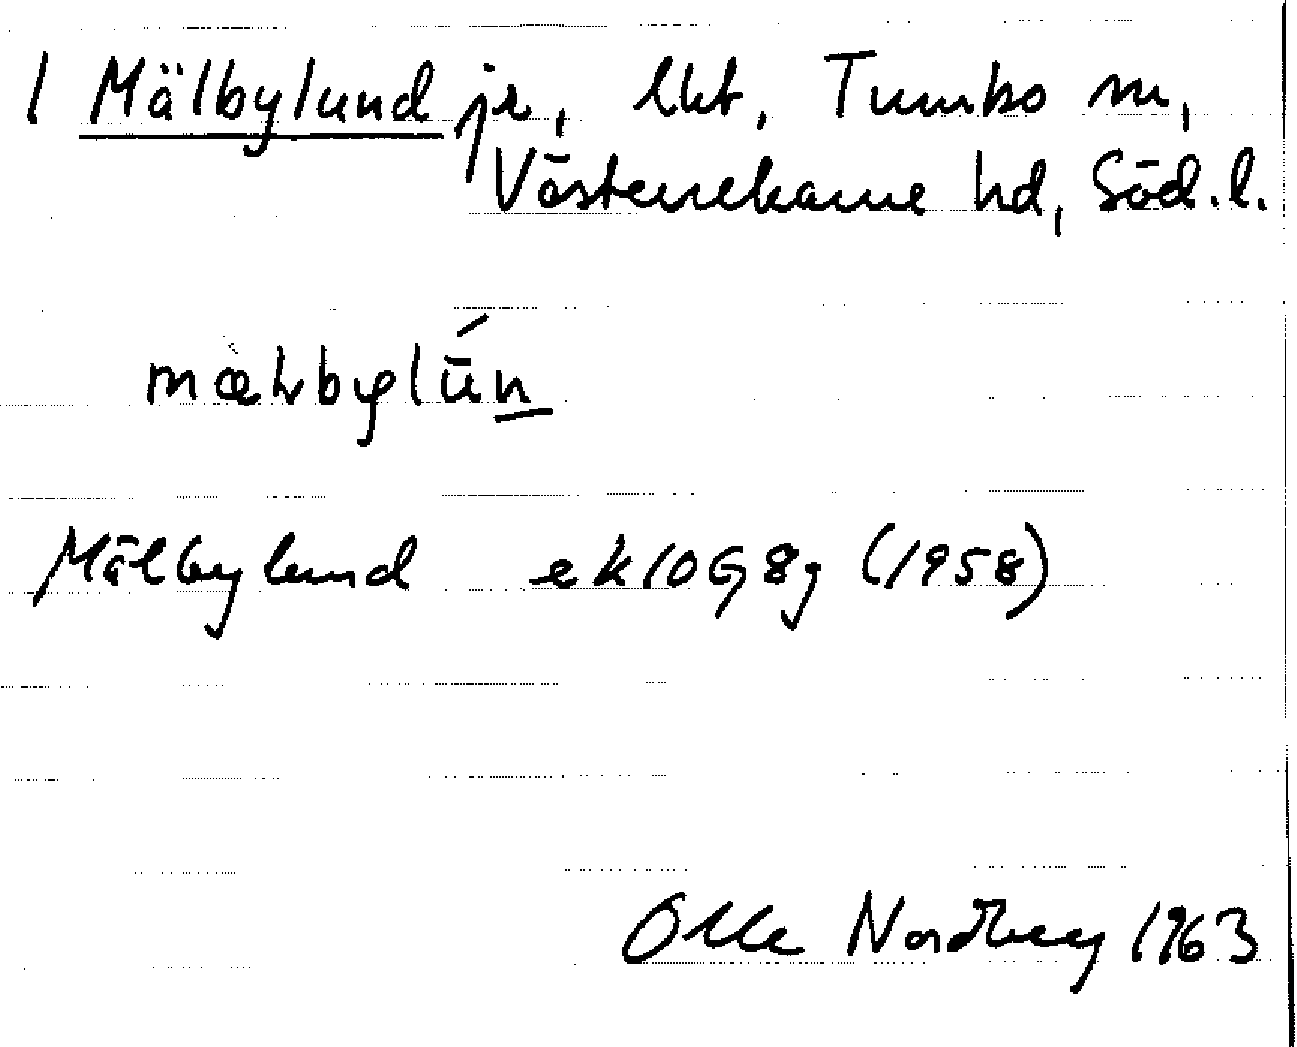 1 Mälbylund jr, lht, Tumbo sn,
Västerrekarne hd, Söd.l.
Mälbylund ek 10G8g (1958)
Olle Nordberg 1963